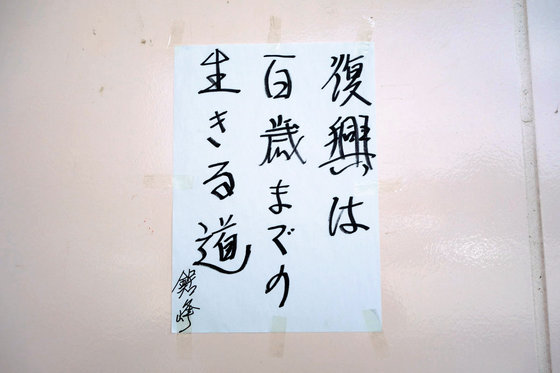 復興は
百歳までの
生きる道